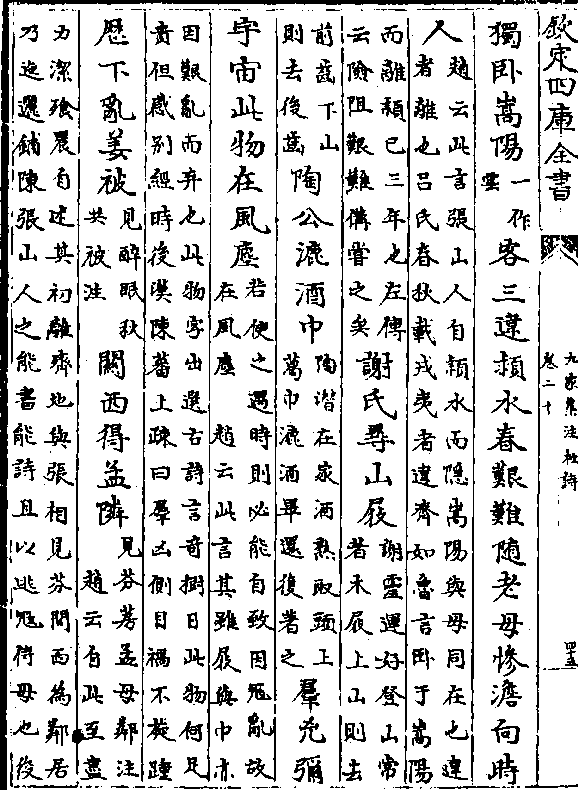 欽定四庫全書
九家集注杜詩
卷二十
四五
獨卧嵩陽一作雲客三違頴水春艱難随老母慘澹向時
人趙云此言張山人自頴水而隐嵩陽與母同在也違
者離也吕氏春秋載戎夷者違齊如魯言卧于嵩陽
而離頴已三年也左傳
云險阻艱難備嘗之矣謝氏尋山屐謝靈運好登山常
著木屐上山則去
前齒下山
則去後齒陶公漉酒巾陶潜在家酒熟取頭上
葛巾漉酒畢還復著之羣兇彌
宇宙此物在風塵若使之遇時則必能自致因冦亂故
在風塵 趙云此言其雖屐與巾亦
因艱亂而弃也此物字出選古詩言竒樹曰此物何足
貴但感别經時後漢陳蕃上疏曰羣凶側目禍不旋踵
歴下亂姜被見醉眠秋
共被注闗西得孟隣見芬芳孟母鄰注
趙云自此至盡
力潔飱晨自述其初離齊地與張相見芬闗西為鄰居
乃迤邐鋪陳張山人之能書能詩且以逃冦侍母也後